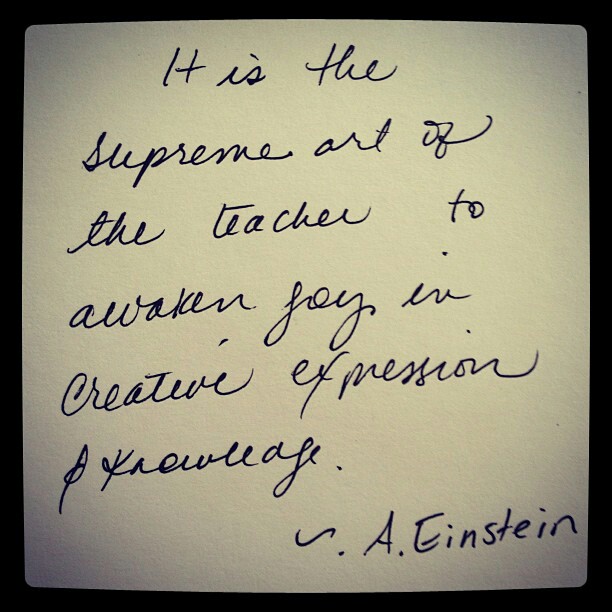 It is the
supreme art of
the teacher to
awaken joy in
Creative expression
& knowledge.
~. A. Einstein